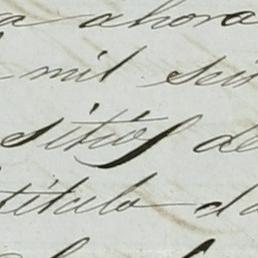 a ahora
mil sei
sitios de
título d